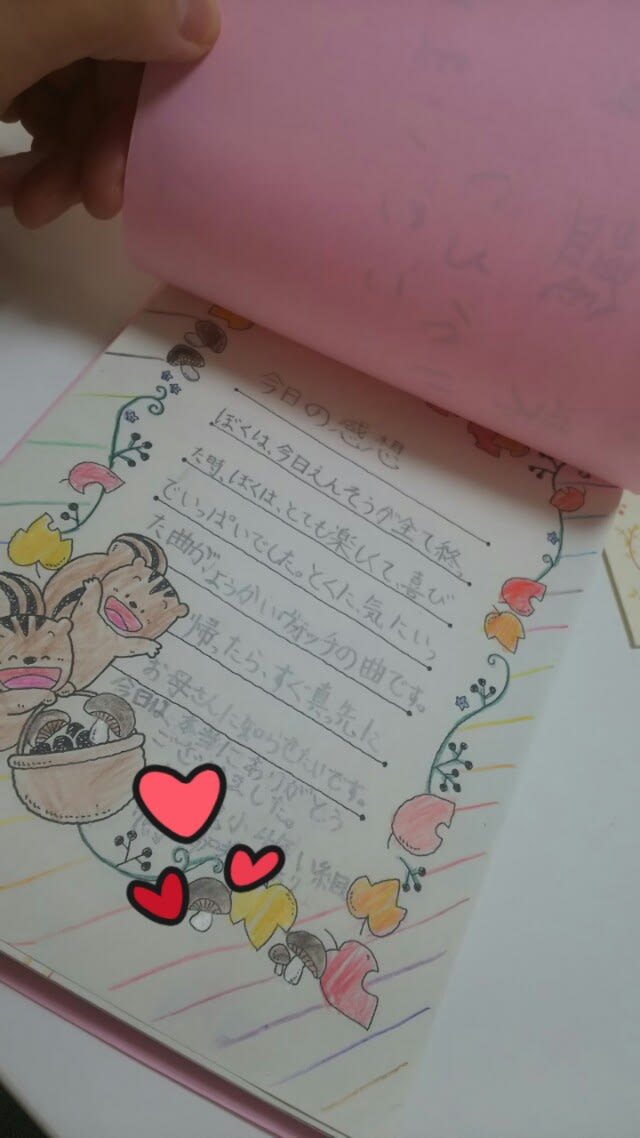 今日の感想
ぼくは、今日えんそうが全て終っ
た時、ぼくは、とても楽しくて、喜び
でいっぱいでした。とくに、気にいっ
た曲が、ようかいウォッチの曲です。
帰ったら、すぐ真っ先に
お母さんに知らせたいです。
今日は、本当にありがとう
ございました。
小 い 組